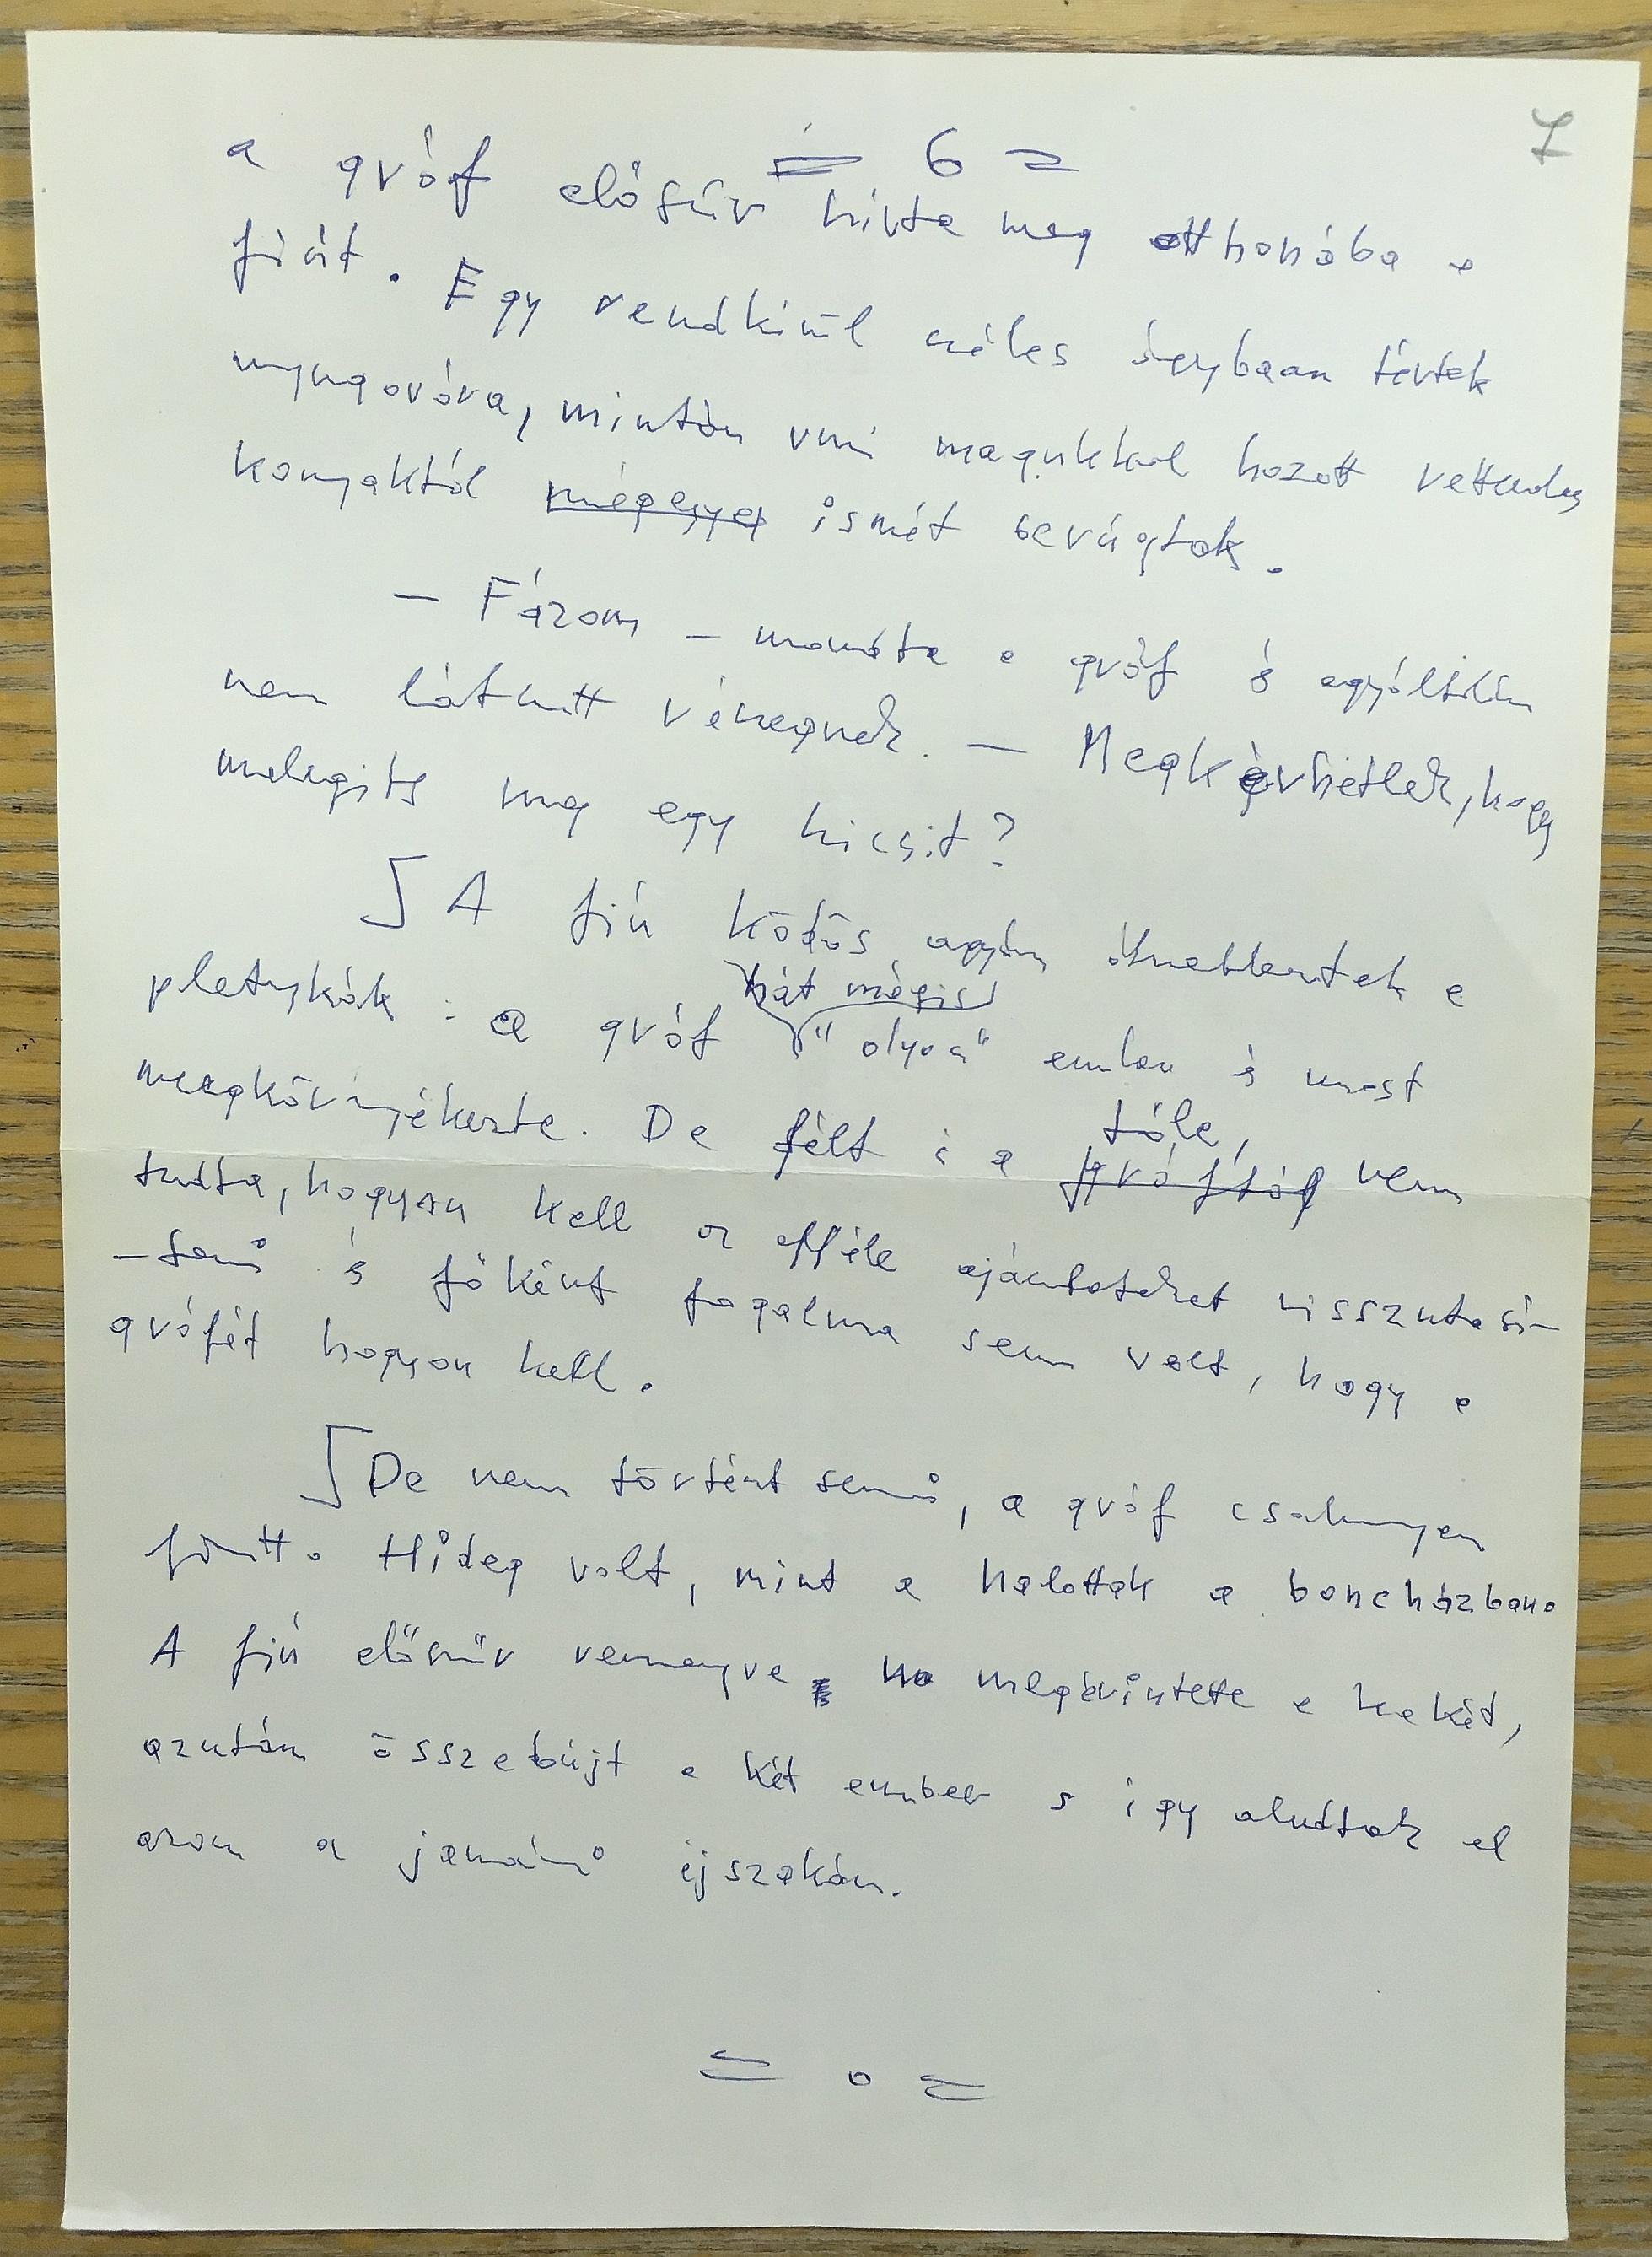 7
= 6 =
a gróf először hívta meg otthonába a
fiút. Egy rendkívül széles ágyban tértek
nyugovóra, miután magukkal hozott
konyaktól mégegyet ismét berúgtak.
— Fázom — mondta a gróf és egyáltalán
nem látszott részegnek. — Megkérhetlek, hogy
melegíts meg egy kicsit?
A fiú ködös agyán átnedlentek a
pletykák: a gróf hát mégis "olyan" ember és most
megkörnyékezte. De félt is a gróftól tőle, nem
tudta, hogyan kell az efféle ajánlatokat visszutasí-
-tani és főként fogalma sem volt, hogy a
grófét hogyan kell.
De nem történt semmi, a gróf csakugyan
fázott. Hideg volt, mint a halottak a boncházban.
A fiú először remegve megérintette a kezét,
azután összebújt a két ember s így aludtak el
azon a januári éjszakán.
= o =